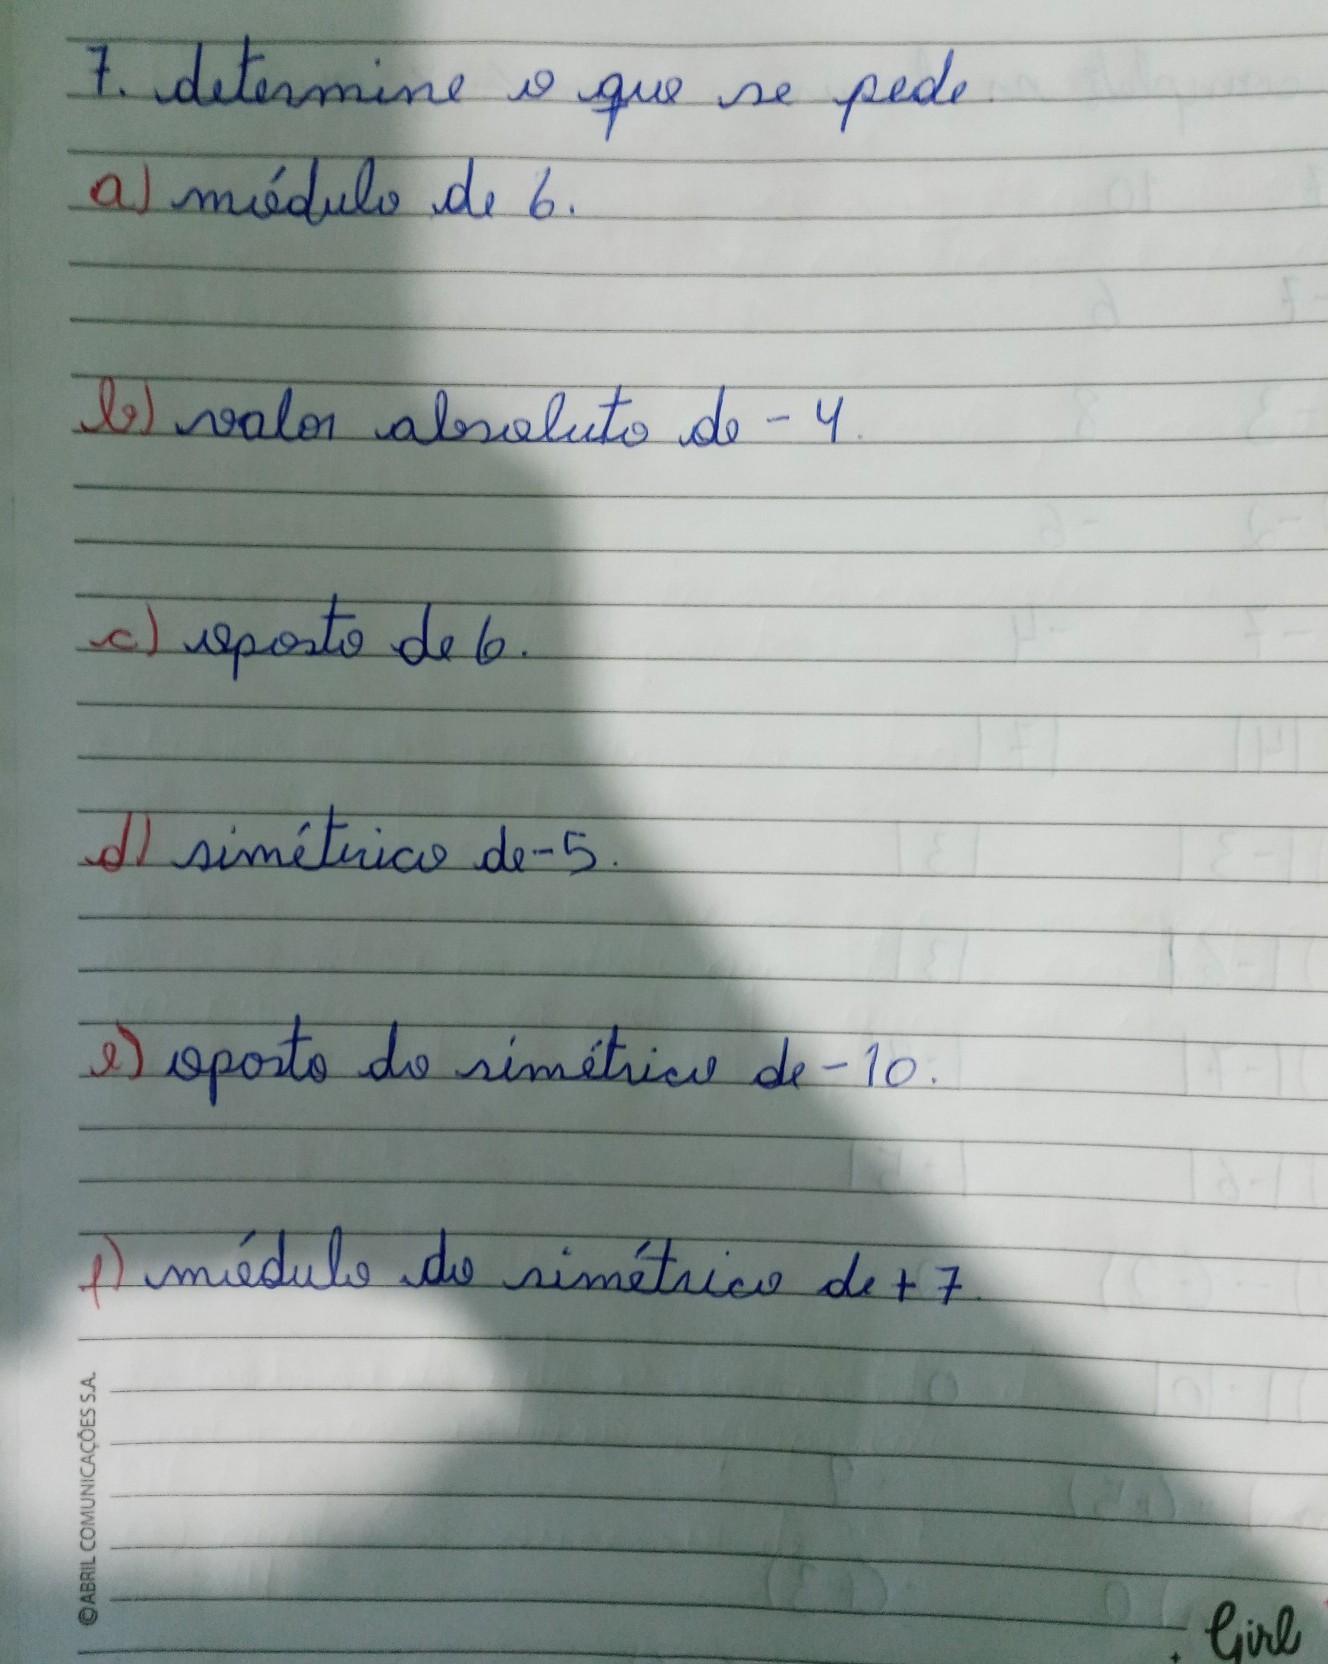 7. determine o que se pede
a) módulo de 6.
b) valor absoluto de -4.
c) oposto de 6.
d) simétrico de -5.
e) oposto do simétrico de -10.
f) módulo do simétrico de +7.
©ABRIL COMUNICAÇÕES S.A.
Girl